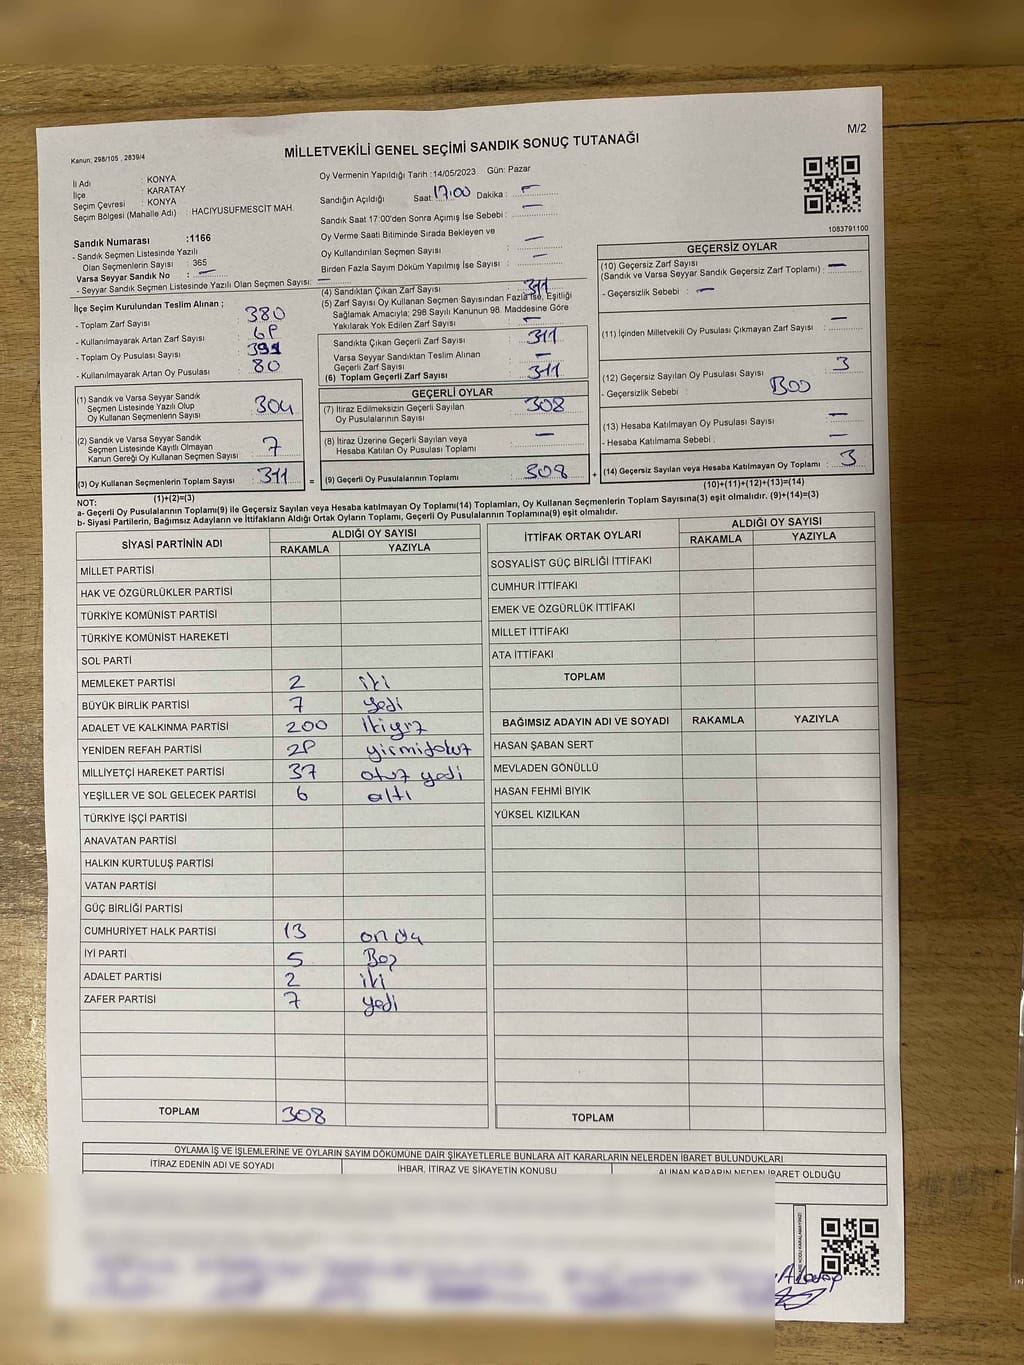 M/2
Kanun; 298/105 , 2839/4
MİLLETVEKİLİ GENEL SEÇİMİ SANDIK SONUÇ TUTANAĞI
İl Adı : KONYA
İlçe : KARATAY
Seçim Çevresi : KONYA
Seçim Bölgesi (Mahalle Adı) : HACIYUSUFMESCİT MAH.
Sandık Numarası :1166
- Sandık Seçmen Listesinde Yazılı
Olan Seçmenlerin Sayısı : 365
Varsa Seyyar Sandık No : —
- Seyyar Sandık Seçmen Listesinde Yazılı Olan Seçmen Sayısı: —
İlçe Seçim Kurulundan Teslim Alınan ;
- Toplam Zarf Sayısı : 380
- Kullanılmayarak Artan Zarf Sayısı : 69
- Toplam Oy Pusulası Sayısı : 391
- Kullanılmayarak Artan Oy Pusulası : 80
(1) Sandık ve Varsa Seyyar Sandık
Seçmen Listesinde Yazılı Olup
Oy Kullanan Seçmenlerin Sayısı : 304
(2) Sandık ve Varsa Seyyar Sandık
Seçmen Listesinde Kayıtlı Olmayan
Kanun Gereği Oy Kullanan Seçmen Sayısı : 7
(3) Oy Kullanan Seçmenlerin Toplam Sayısı : 311
(1)+(2)=(3)
Oy Vermenin Yapıldığı Tarih :14/05/2023 Gün: Pazar
Sandığın Açıldığı Saat: 17:00 Dakika : —
Sandık Saat 17:00'den Sonra Açımış İse Sebebi : —
Oy Verme Saati Bitiminde Sırada Bekleyen ve
Oy Kullandırılan Seçmen Sayısı : —
Birden Fazla Sayım Döküm Yapılmış İse Sayısı : —
(4) Sandıktan Çıkan Zarf Sayısı : 311
(5) Zarf Sayısı Oy Kullanan Seçmen Sayısından Fazla İse, Eşitliği
Sağlamak Amacıyla; 298 Sayılı Kanunun 98. Maddesine Göre
Yakılarak Yok Edilen Zarf Sayısı : —
Sandıkta Çıkan Geçerli Zarf Sayısı : 311
Varsa Seyyar Sandıktan Teslim Alınan
Geçerli Zarf Sayısı : —
(6) Toplam Geçerli Zarf Sayısı : 311
GEÇERLİ OYLAR
(7) İtiraz Edilmeksizin Geçerli Sayılan
Oy Pusulalarının Sayısı : 308
(8) İtiraz Üzerine Geçerli Sayılan veya
Hesaba Katılan Oy Pusulası Toplamı : —
= (9) Geçerli Oy Pusulalarının Toplamı : 308 +
1083791100
GEÇERSİZ OYLAR
(10) Geçersiz Zarf Sayısı
(Sandık ve Varsa Seyyar Sandık Geçersiz Zarf Toplamı) : —
- Geçersizlik Sebebi : —
(11) İçinden Milletvekili Oy Pusulası Çıkmayan Zarf Sayısı : —
(12) Geçersiz Sayılan Oy Pusulası Sayısı : 3
- Geçersizlik Sebebi :
(13) Hesaba Katılmayan Oy Pusulası Sayısı : —
- Hesaba Katılmama Sebebi : —
(14) Geçersiz Sayılan veya Hesaba Katılmayan Oy Toplamı : 3
(10)+(11)+(12)+(13)=(14)
NOT:
a- Geçerli Oy Pusulalarının Toplamı(9) ile Geçersiz Sayılan veya Hesaba Katılmayan Oy Toplamı(14) Toplamları, Oy Kullanan Seçmenlerin Toplam Sayısına(3) eşit olmalıdır. (9)+(14)=(3)
b- Siyasi Partilerin, Bağımsız Adayların ve İttifakların Aldığı Ortak Oyların Toplamı, Geçerli Oy Pusulalarının Toplamına(9) eşit olmalıdır.
SİYASİ PARTİNİN ADI ALDIĞI OY SAYISI
RAKAMLA YAZIYLA
MİLLET PARTİSİ
HAK VE ÖZGÜRLÜKLER PARTİSİ
TÜRKİYE KOMÜNİST PARTİSİ
TÜRKİYE KOMÜNİST HAREKETİ
SOL PARTİ
MEMLEKET PARTİSİ 2 iki
BÜYÜK BİRLİK PARTİSİ 7 yedi
ADALET VE KALKINMA PARTİSİ 200 ikiyüz
YENİDEN REFAH PARTİSİ 29 yirmidokuz
MİLLİYETÇİ HAREKET PARTİSİ 37 otuz yedi
YEŞİLLER VE SOL GELECEK PARTİSİ 6 altı
TÜRKİYE İŞÇİ PARTİSİ
ANAVATAN PARTİSİ
HALKIN KURTULUŞ PARTİSİ
VATAN PARTİSİ
GÜÇ BİRLİĞİ PARTİSİ
CUMHURİYET HALK PARTİSİ 13 on üç
İYİ PARTİ 5 Beş
ADALET PARTİSİ 2 iki
ZAFER PARTİSİ 7 yedi
TOPLAM 308
İTTİFAK ORTAK OYLARI ALDIĞI OY SAYISI
RAKAMLA YAZIYLA
SOSYALİST GÜÇ BİRLİĞİ İTTİFAKI
CUMHUR İTTİFAKI
EMEK VE ÖZGÜRLÜK İTTİFAKI
MİLLET İTTİFAKI
ATA İTTİFAKI
TOPLAM
BAĞIMSIZ ADAYIN ADI VE SOYADI RAKAMLA YAZIYLA
HASAN ŞABAN SERT
MEVLADEN GÖNÜLLÜ
HASAN FEHMİ BIYIK
YÜKSEL KIZILKAN
TOPLAM
OYLAMA İŞ VE İŞLEMLERİNE VE OYLARIN SAYIM DÖKÜMÜNE DAİR ŞİKAYETLERLE BUNLARA AİT KARARLARIN NELERDEN İBARET BULUNDUKLARI
İTİRAZ EDENİN ADI VE SOYADI İHBAR, İTİRAZ VE ŞİKAYETİN KONUSU ALINAN KARARIN NEDEN İBARET OLDUĞU